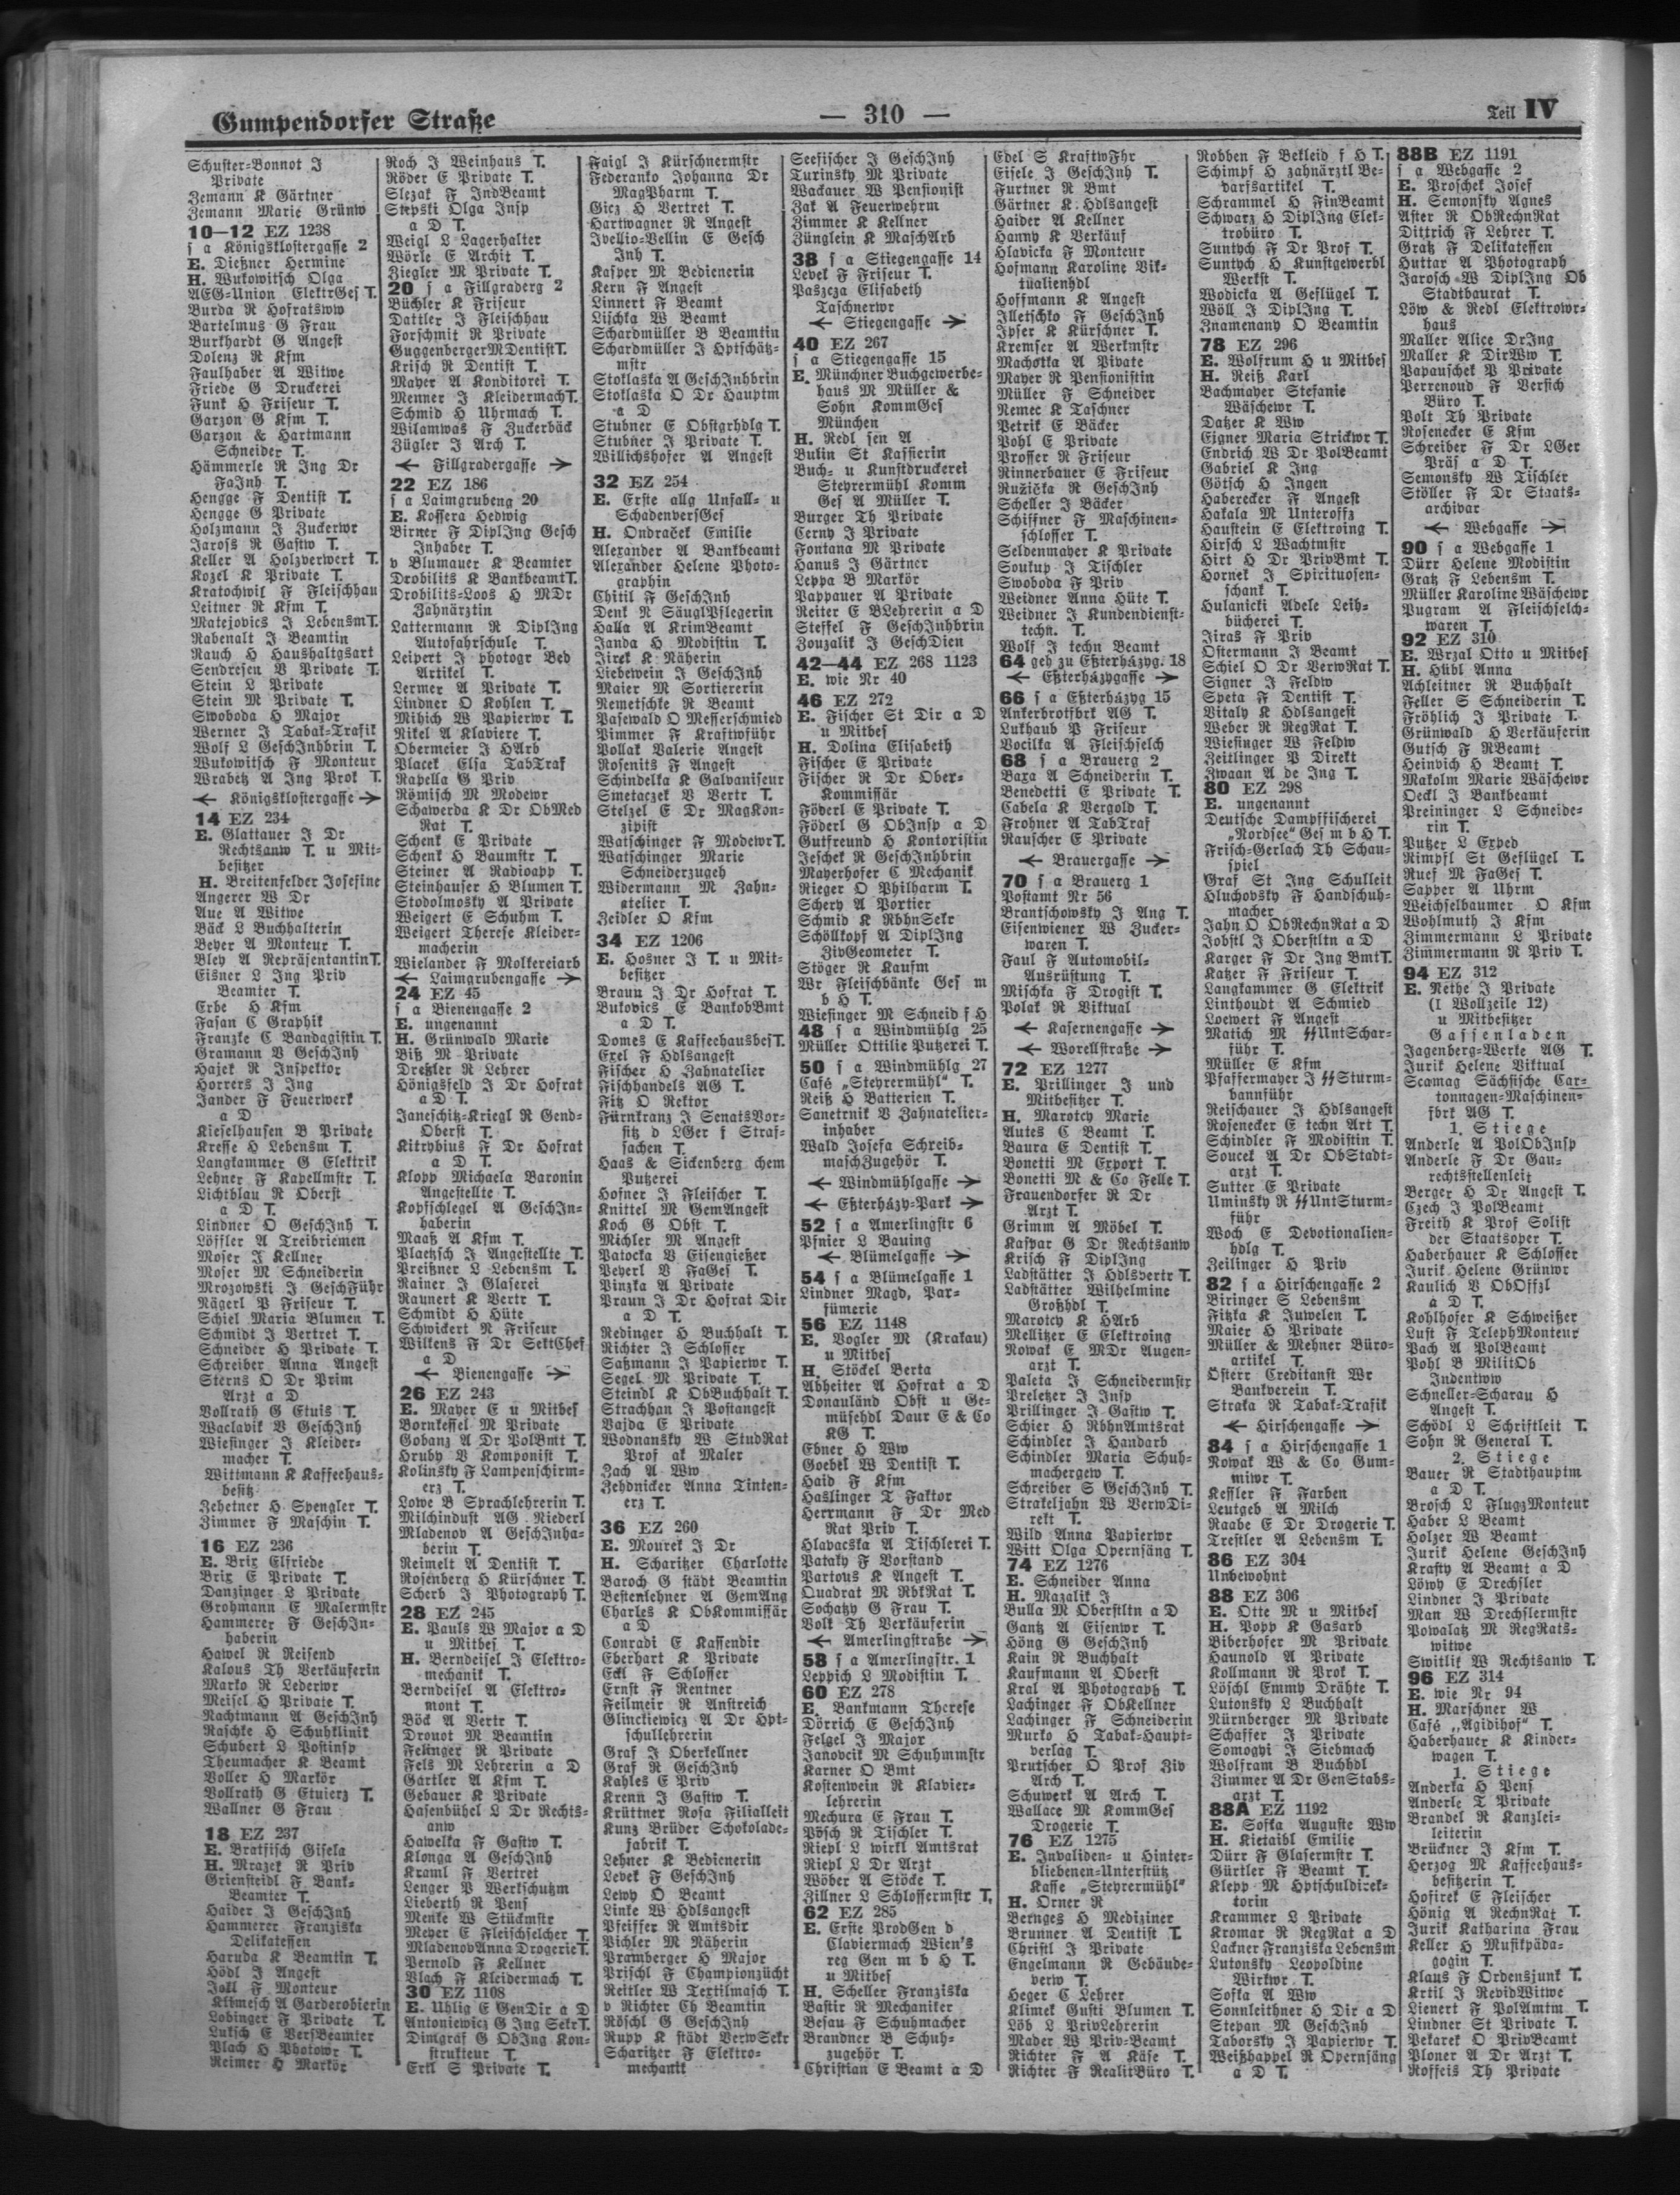 Gumpendorfer Straße
— 310 —
Teil IV
Schuster-Bonnot J
Private
Zemann K Gärtner
Zemann Marie Grünw
10—12 EZ 1238
s a Königsklostergasse 2
E. Dießner Hermine
H. Wukowitsch Olga
AEG-Union ElektrGes T.
Burda R Hofratsww
Bartelmus G Frau
Burkhardt G Angest
Dolenz R Kfm
Faulhaber A Witwe
Friede G Druckerei
Funk H Friseur T.
Garzon G Kfm T.
Garzon & Hartmann
Schneider T.
Hämmerle R Ing Dr
FaJnh T.
Hengge F Dentist T.
Hengge G Private
Holzmann J Zuckerwr
Jaross R Gastw T.
Keller A Holzverwert T.
Kozel K Private T.
Kratochwil F Fleischhau
Leitner R Kfm T.
Matejovics J LebensmT.
Rabenalt J Beamtin
Rauch H Haushaltgsart
Sendresen V Private T.
Stein L Private
Stein M Private T.
Swoboda H Major
Werner J Tabak-Trafik
Wolf L GeschJnhbrin T.
Wukowitsch F Monteur
Wrabetz A Ing Prok T.
← Königsklostergasse →
14 EZ 234
E. Glattauer J Dr
Rechtsanw T. u Mit-
besitzer
H. Breitenfelder Josefine
Angerer W Dr
Aue A Witwe
Bäck L Buchhalterin
Beyer A Monteur T.
Bley A RepräsentantinT.
Eisner L Ing Priv
Beamter T.
Erbe H Kfm
Fasan C Graphik
Franzke C Bandagistin T.
Gramann V GeschJnh
Hajek R Inspektor
Horrers J Ing
Jander F Feuerwerk
a D
Kieselhausen B Private
Kresse H Lebensm T.
Langkammer G Elektrik
Lehner F Kapellmstr T.
Lichtblau R Oberst
a D T.
Lindner O GeschJnh T.
Löffler A Treibriemen
Moser J Kellner
Moser M Schneiderin
Mrozowski J GeschFühr
Nägerl P Friseur T.
Schiel Maria Blumen T.
Schmidt J Vertret T.
Schneider H Private T.
Schreiber Anna Angest
Sterns O Dr Prim
Arzt a D
Vollrath G Etuis T.
Waclavik V GeschJnh
Wiesinger J Kleider-
macher T.
Wittmann K Kaffeehaus-
besitz
Zehetner H Spengler T.
Zimmer F Maschin T.
16 EZ 236
E. Brix Elfriede
Brix E Private T.
Danzinger L Private
Grohmann E Malermstr
Hammerer F GeschJn-
haberin
Hawel R Reisend
Kalous Th Verkäuferin
Marko R Lederwr
Meisel H Private T.
Nachtmann A GeschJnh
Raschke H Schuhklinik
Schubert L Postinsp
Theumacher K Beamt
Voller H Markör
Vollrath G Etuierz T.
Wallner G Frau
18 EZ 237
E. Bratfisch Gisela
H. Mrazek R Priv
Griensteidl F Bank-
Beamter T.
Haider J GeschJnh
Hammerer Franziska
Delikatessen
Haruda K Beamtin T.
Hödl J Angest
Jokl F Monteur
Klimesch A Garderobierin
Lobinger F Private T.
Luksch E VersBeamter
Plach H Photowr T.
Reimer H Markör
Roch J Weinhaus T.
Röder E Private T.
Slezak F IndBeamt
Stepski Olga Insp
a D T.
Weigl L Lagerhalter
Wörle E Archit T.
Ziegler M Private T.
20 s a Fillgraderg 2
Büchler K Friseur
Dattler J Fleischhau
Forschmit R Private
GuggenbergerMDentistT.
Krisch R Dentist T.
Mayer A Konditorei T.
Menner J KleidermachT.
Schmid H Uhrmach T.
Wilamwas F Zuckerbäck
Zügler J Arch T.
← Fillgradergasse →
22 EZ 186
s a Laimgrubeng 20
E. Kossera Hedwig
Birner F DiplIng Gesch
Inhaber T.
v Blumauer K Beamter
Drobilits K BankbeamtT.
Drobilits-Loos H MDr
Zahnärztin
Lattermann R DiplIng
Autofahrschule T.
Leipert J photogr Bed
Artikel T.
Lermer A Private T.
Lindner O Kohlen T.
Mihich W Papierwr T.
Nikel A Klaviere T.
Obermeier J HArb
Placek Elsa TabTraf
Rapella G Priv
Römisch M Modewr
Schawerda K Dr ObMed
Rat T.
Schenk E Private
Schenk H Baumstr T.
Steiner A Radioapp T.
Steinhauser H Blumen T.
Stodolmosky A Private
Weigert E Schuhm T.
Weigert Therese Kleider-
macherin
Wielander F Molkereiarb
← Laimgrubengasse →
24 EZ 45
s a Bienengasse 2
E. ungenannt
H. Grünwald Marie
Biß M Private
Dreßler R Lehrer
Hönigsfeld J Dr Hofrat
a D T.
Janeschitz-Kriegl R Gend-
Oberst T.
Kitrybius F Dr Hofrat
a D T.
Klopp Michaela Baronin
Angestellte T.
Kopfschlegel A GeschJn-
haberin
Maaß A Kfm T.
Plaetzsch J Angestellte T.
Preißner L Lebensm T.
Rainer J Glaserei
Raunert K Vertr T.
Schmidt H Hüte
Schwickert R Friseur
Wilkens F Dr SektChef
a D
← Bienengasse →
26 EZ 243
E. Mayer E u Mitbes
Bornkessel M Private
Gobanz A Dr PolBmt T.
Hruby V Komponist T.
Kolinsky F Lampenschirm-
erz T.
Lowe B Sprachlehrerin T.
Milchindust AG Niederl
Mladenov A GeschJnha-
berin T.
Reimelt A Dentist T.
Rosenberg H Kürschner T.
Scherb J Photograph T.
28 EZ 245
E. Pauls W Major a D
u Mitbes T.
H. Berndeisel J Elektro-
mechanik T.
Berndeisel A Elektro-
mont T.
Böck A Vertr T.
Drouot M Beamtin
Felinger R Private
Fels M Lehrerin a D
Gärtler A Kfm T.
Gebauer K Private
Hasenbühel L Dr Rechts-
anw
Hawelka F Gastw T.
Klonga A GeschJnh
Kraml F Vertret
Lenger P Werkschutzm
Lieberth R Pens
Menke W Stückmstr
Meyer E Fleischselcher T.
MladenovAnna DrogerieT.
Pernold F Kellner
Vlach F Kleidermach T.
30 EZ 1108
E. Uhlig E GenDir a D
Antoniewicz G Ing SekrT.
Dimgraf G ObIng Kon-
strukteur T.
Ertl S Private T.
Faigl J Kürschnermstr
Federanko Johanna Dr
MagPharm T.
Giez H Vertret T.
Hartwagner R Angest
Ivellio-Vellin E Gesch
Inh T.
Kasper M Bedienerin
Kern F Angest
Linnert F Beamt
Lischka W Beamt
Schardmüller B Beamtin
Schardmüller J Hptschätz-
mstr
Stoklaska A GeschJnhbrin
Stoklaska O Dr Hauptm
a D
Stubner E Obstgrhdlg T.
Stubner J Private T.
Willichshofer A Angest
32 EZ 254
E. Erste allg Unfall- u
SchadenversGes
H. Ondraček Emilie
Alexander A Bankbeamt
Alexander Helene Photo-
graphin
Chitil F GeschJnh
Denk N SäuglPflegerin
Halla A KrimBeamt
Janda H Modistin T.
Jirek K Näherin
Liebewein J GeschJnh
Maier M Sortiererin
Nemetschke R Beamt
Pasewald O Messerschmied
Pimmer F Kraftwführ
Pollak Valerie Angest
Rosenits F Angest
Schindelka K Galvaniseur
Smetaczek V Vertr T.
Stelzel E Dr MagKon-
zipist
Watschinger F ModewrT.
Watschinger Marie
Schneiderzugeh
Widermann M Zahn-
atelier T.
Zeidler O Kfm
34 EZ 1206
E. Hosner J T. u Mit-
besitzer
Braun J Dr Hofrat T.
Bukovics E BankobBmt
a D T.
Domes E KaffeehausbesT.
Exel F Hdlsangest
Fischer H Zahnatelier
Fischhandels AG T.
Fitz O Rektor
Fürnkranz J SenatsVor-
sitz d LGer f Straf-
sachen T.
Haas & Sickenberg chem
Putzerei
Hofner J Fleischer T.
Knittel M GemAngest
Koch G Obst T.
Michler M Angest
Patocka V Eisengießer
Peyerl V FaGes T.
Pinzka A Private
Praun J Dr Hofrat Dir
a D T.
Redinger H Buchhalt T.
Richter J Schlosser
Saßmann J Papierwr T.
Segel M Private T.
Steindl K ObBuchhalt T.
Strachhan J Postangest
Vajda E Private
Wodnansky W StudRat
Prof ak Maler
Zach A Ww
Zehdnicker Anna Tinten-
erz T.
36 EZ 260
E. Mourek J Dr
H. Scharitzer Charlotte
Baroch G städt Beamtin
Bestenlehner A GemAng
Charles K ObKommissär
a D
Conradi E Kassendir
Eberhart K Private
Eckl F Schlosser
Ernst F Rentner
Feilmeir R Anstreich
Glinckiewicz A Dr Hpt-
schullehrerin
Graf J Oberkellner
Graf R GeschJnh
Kahles E Priv
Krenn J Gastw T.
Krüttner Rosa Filialleit
Kunz Brüder Schokolade-
fabrik T.
Lehner K Bedienerin
Levek F GeschJnh
Lewy O Beamt
Linke W Hdlsangest
Pfeiffer R Amtsdir
Pichler M Näherin
Pramberger H Major
Prischl F Championzücht
Reitler W Textilmasch T.
v Richter Ch Beamtin
Röschl G GeschJnh
Rupp K städt VerwSekr
Scharitzer F Elektro-
mechanik
Seefischer J GeschJnh
Turinsky M Private
Wackauer W Pensionist
Zak A Feuerwehrm
Zimmer K Kellner
Zünglein K MaschArb
38 s a Stiegengasse 14
Levek F Friseur T.
Paszcza Elisabeth
Taschnerwr
← Stiegengasse →
40 EZ 267
s a Stiegengasse 15
E. Münchner Buchgewerbe-
haus M Müller &
Sohn KommGes
München
H. Redl sen A
Bulin St Kassierin
Buch- u Kunstdruckerei
Steyrermühl Komm
Ges A Müller T.
Burger Th Private
Cerny J Private
Fontana M Private
Hanus J Gärtner
Leppa B Markör
Pappauer A Private
Reiter E BLehrerin a D
Steffel F GeschJnhbrin
Zouzalik J GeschDien
42—44 EZ 268 1123
E. wie Nr 40
46 EZ 272
E. Fischer St Dir a D
u Mitbes
H. Dolina Elisabeth
Fischer E Private
Fischer R Dr Ober-
Kommissär
Föderl E Private T.
Föderl G ObInsp a D
Gutfreund H Kontoristin
Jeschek R GeschJnhbrin
Mayerhofer C Mechanik
Rieger O Philharm T.
Schery A Portier
Schmid K RbhnSekr
Schöllkopf A DiplIng
ZivGeometer T.
Stöger R Kaufm
Wr Fleischbänke Ges m
b H T.
Wiesinger M Schneid f H
48 s a Windmühlg 25
Müller Ottilie Putzerei T.
50 s a Windmühlg 27
Café „Steyrermühl" T.
Reiß H Batterien T.
Sanetrnik V Zahnatelier-
inhaber
Wald Josefa Schreib-
maschZugehör T.
← Windmühlgasse →
← Eßterházy-Park →
52 s a Amerlingstr 6
Pfnier L Bauing
← Blümelgasse →
54 s a Blümelgasse 1
Lindner Magd, Par-
fümerie
56 EZ 1148
E. Vogler M (Krakau)
u Mitbes
H. Stöckel Berta
Abheiter A Hofrat a D
Donauländ Obst u Ge-
müsehdl Daur E & Co
KG T.
Ebner H Ww
Goebel W Dentist T.
Haid F Kfm
Haslinger T Faktor
Herrmann F Dr Med
Rat Priv T.
Hlavacska A Tischlerei T.
Pataky F Vorstand
Partous K Angest T.
Quadrat M RbkRat T.
Sochatzy G Frau T.
Volk Th Verkäuferin
← Amerlingstraße →
58 s a Amerlingstr. 1
Leppich L Modistin T.
60 EZ 278
E. Bankmann Therese
Dörrich E GeschJnh
Felgel J Major
Janovcik M Schuhmmstr
Karner O Bmt
Kostenwein R Klavier-
lehrerin
Mechura E Frau T.
Pösch R Tischler T.
Riepl L wirkl Amtsrat
Riepl L Dr Arzt
Wöber A Stöcke T.
Zillner L Schlossermstr T.
62 EZ 285
E. Erste ProdGen d
Claviermach Wien's
reg Gen m b H T.
u Mitbes
H. Scheller Franziska
Bastir R Mechaniker
Besau F Schuhmacher
Brandner B Schuh-
zugehör T.
Christian E Beamt a D
Edel S KraftwFhr
Eisele J GeschJnh T.
Furtner R Bmt
Gärtner K Hdlsangest
Haider A Kellner
Hanny K Verkäuf
Hlavicka F Monteur
Hofmann Karoline Vik-
tualienhdl
Hoffmann K Angest
Illetschko F GeschJnh
Ipser K Kürschner T.
Kremser A Werkmstr
Machotka A Pivate
Mayer R Pensionistin
Müller F Schneider
Nemec K Taschner
Petrik E Bäcker
Pohl E Private
Prosser R Friseur
Rinnerbauer E Friseur
Ružička R GeschJnh
Scheller J Bäcker
Schiffner F Maschinen-
schlosser T.
Seldenmayer K Private
Soukup J Tischler
Swoboda F Priv
Weidner Anna Hüte T.
Weidner J Kundendienst-
techn. T.
Wolf J techn Beamt
64 geh zu Eßterházyg. 18
← Eßterházygasse →
66 s a Eßterházyg 15
Ankerbrotfbrk AG T.
Lukhaub P Friseur
Vocilka A Fleischselch
68 s a Brauerg 2
Baxa A Schneiderin T.
Benedetti E Private T.
Cabela K Vergold T.
Frohner A TabTraf
Rauscher E Private
← Brauergasse →
70 s a Brauerg 1
Postamt Nr 56
Brantschowsky J Ang T.
Eisenwiener W Zucker-
waren T.
Faul F Automobil-
Ausrüstung T.
Mischka F Drogist T.
Polak R Viktual
← Kasernengasse →
← Worellstraße →
72 EZ 1277
E. Prillinger J und
Mitbesitzer T.
H. Marotcy Marie
Autes C Beamt T.
Baura E Dentist T.
Bonetti M Export T.
Bonetti M & Co Felle T.
Frauendorfer R Dr
Arzt T.
Grimm A Möbel T.
Kaspar G Dr Rechtsanw
Krisch F DiplIng
Ladstätter J Hdlsvertr T.
Ladstätter Wilhelmine
Großhdl T.
Marotcy K HArb
Mellitzer E Elektroing
Nowak E MDr Augen-
arzt T.
Paleta J Schneidermstr
Preletzer J Insp
Prillinger J Gastw T.
Schier H RbhnAmtsrat
Schindler J Handarb
Schindler Maria Schuh-
machergew T.
Schreiber S GeschJnh T.
Strakeljahn W VerwDi-
rekt T.
Wild Anna Papierwr
Witt Olga Opernsäng T.
74 EZ 1276
E. Schneider Anna
H. Mazalik J
Bulla M Oberstltn a D
Gantz A Eisenwr T.
Höng G GeschJnh
Kain R Buchhalt
Kaufmann A Oberst
Kral A Photograph T.
Lachinger F ObKellner
Lachinger F Schneiderin
Murko H Tabak-Haupt-
verlag T.
Prutscher O Prof Ziv
Arch T.
Schuwerk A Arch T.
Wallace M KommGes
Drogerie T.
76 EZ 1275
E. Invaliden- u Hinter-
bliebenen-Unterstütz
Kasse „Steyrermühl"
H. Orner R
Bernges H Mediziner
Brunner A Dentist T.
Christl J Private
Engelmann R Gebäude-
verw T.
Heger C Lehrer
Klimek Gusti Blumen T.
Löb L PrivLehrerin
Mader W Priv-Beamt
Richter F A Käse T.
Richter F RealitBüro T.
Robben F Bekleid f H T.
Schimpf H zahnärztl Be-
darfsartikel T.
Schrammel H FinBeamt
Schwarz H DiplIng Elek-
trobüro T.
Suntych F Dr Prof T.
Suntych H Kunstgewerbl
Werkst T.
Wodicka A Geflügel T.
Wöll J DiplIng T.
Znamenany O Beamtin
78 EZ 296
E. Wolfrum H u Mitbes
H. Reiß Karl
Bachmayer Stefanie
Wäschewr T.
Datzer K Ww
Eigner Maria Strickwr T.
Endrich W Dr PolBeamt
Gabriel K Ing
Götsch H Ingen
Haberecker F Angest
Hakala M Unteroffz
Haustein E Elektroing T.
Hirsch L Wachtmstr
Hirt H Dr PrivBmt T.
Hornek J Spirituosen-
schank T.
Hulanicki Adele Leih-
bücherei T.
Jiras F Priv
Ostermann J Beamt
Schiel O Dr VerwRat T.
Signer J Feldw
Speta F Dentist T.
Vitaly K Hdlsangest
Weber R RegRat T.
Wiesinger W Feldw
Zeitlinger P Direkt
Zwaan A de Ing T.
80 EZ 298
E. ungenannt
Deutsche Dampffischerei
„Nordsee" Ges m b H T.
Frisch-Gerlach Th Schau-
spiel
Graf St Ing Schulleit
Hluchovsky F Handschuh-
macher
Jahn O ObRechnRat a D
Jobstl J Oberstltn a D
Karger F Dr Ing BmtT.
Katzer F Friseur T.
Langkammer G Elektrik
Linthoudt A Schmied
Loewert F Angest
Matich M ᛋᛋUntSchar-
führ T.
Müller E Kfm
Pfaffermayer J ᛋᛋSturm-
bannführ
Reischauer J Hdlsangest
Rosenecker E techn Art T.
Schindler F Modistin T.
Soucek A Dr ObStadt-
arzt T.
Sutter E Private
Uminsky R ᛋᛋUntSturm-
führ
Woch E Devotionalien-
hdlg T.
Zeilinger H Priv
82 s a Hirschengasse 2
Biringer S Lebensm
Fitzka K Juwelen T.
Maier H Private
Müller & Mehner Büro-
artikel T.
Österr Creditanst Wr
Bankverein T.
Straka R Tabak-Trafik
← Hirschengasse →
84 s a Hirschengasse 1
Nowak W & Co Gum-
miwr T.
Kessler F Farben
Leutgeb A Milch
Raabe E Dr Drogerie T.
Trestler A Lebensm T.
86 EZ 304
Unbewohnt
88 EZ 306
E. Otte M u Mitbes
H. Popp K Gasarb
Biberhofer M Private
Haunold A Private
Kollmann R Prok T.
Löschl Emmy Drähte T.
Lutonsky L Buchhalt
Nürnberger M Private
Schaffer J Private
Somogyi J Siebmach
Wolfram B Buchhdl
Zimmer A Dr GenStabs-
arzt T.
88A EZ 1192
E. Soska Auguste Ww
H. Kietaibl Emilie
Dürr F Glasermstr T.
Gürtler F Beamt T.
Klepp M Hptschuldirek-
torin
Krammer L Private
Kromar R RegRat a D
Lackner Franziska Lebensm
Lutonsky Leopoldine
Wirkwr T.
Soska A Ww
Sonnleithner H Dir a D
Stepan M GeschJnh
Taborsky J Papierwr T.
Weißhappel R Opernsäng
a D T.
88B EZ 1191
s a Webgasse 2
E. Proschek Josef
H. Semonsky Agnes
Aster R ObRechnRat
Dittrich F Lehrer T.
Gratz F Delikatessen
Huttar A Photograph
Jarosch W DiplIng Ob
Stadtbaurat T.
Löw & Redl Elektrowr-
haus
Maller Alice DrIng
Maller K DirWw T.
Papauschek P Private
Perrenoud F Versich
Büro T.
Polt Th Private
Rosenecker E Kfm
Schreiber F Dr LGer
Präs a D T.
Semonsky W Tischler
Stöller F Dr Staats-
archivar
← Webgasse →
90 s a Webgasse 1
Dürr Helene Modistin
Gratz F Lebensm T.
Müller Karoline Wäschewr
Pugram A Fleischselch-
waren T.
92 EZ 310
E. Wrzal Otto u Mitbes
H. Hübl Anna
Achleitner R Buchhalt
Feller S Schneiderin T.
Fröhlich J Private T.
Grünwald H Verkäuferin
Gutsch F RBeamt
Heinvich H Beamt T.
Makolm Marie Wäschewr
Oeckl J Bankbeamt
Preininger L Schneide-
rin T.
Putzer L Exped
Rimpfl St Geflügel T.
Ruef M FaGes T.
Sapper A Uhrm
Weichselbaumer O Kfm
Wohlmuth J Kfm
Zimmermann L Private
Zimmermann R Priv T.
94 EZ 312
E. Nethe J Private
(I Wollzeile 12)
u Mitbesitzer
Gassenladen
Jagenberg-Werke AG T.
Jurik Helene Viktual
Scamag Sächsische Car-
tonnagen-Maschinen-
fbrk AG T.
1. Stiege
Anderle A PolObInsp
Anderle F Dr Gau-
rechtsstellenleit
Berger H Dr Angest T.
Czech J PolBeamt
Freith K Prof Solist
der Staatsoper T.
Haberhauer K Schlosser
Jurik Helene Grünwr
Kaulich V ObOffzl
a D T.
Kohlhofer K Schweißer
Lust F TelephMonteur
Pach A PolBeamt
Pohl B MilitOb
Indentww
Schneller-Scharau H
Angest T.
Schödl L Schriftleit T.
Sohn R General T.
2. Stiege
Bauer R Stadthauptm
a D T.
Brosch L FlugzMonteur
Haber L Beamt
Holzer W Beamt
Jurik Helene GeschJnh
Krasty A Beamt a D
Löwy E Drechsler
Lindner J Private
Man W Drechslermstr
Powalatz M RegRats-
witwe
Switlik W Rechtsanw T.
96 EZ 314
E. wie Nr 94
H. Marschner W
Café „Ägidihof" T.
Haberhauer K Kinder-
wagen T.
1. Stiege
Anderka H Pens
Anderle T Private
Brandel R Kanzlei-
leiterin
Brückner J Kfm T.
Herzog M Kaffeehaus-
besitzerin T.
Hofirek E Fleischer
Hönig A RechnRat T.
Jurik Katharina Frau
Keller H Musikpäda-
gogin T.
Klaus F Ordensjunk T.
Krtil J RevidWitwe
Lienert F PolAmtm T.
Lindner St Private T.
Pekarek O PrivBeamt
Ploner A Dr Arzt T.
Roffeis Th Private